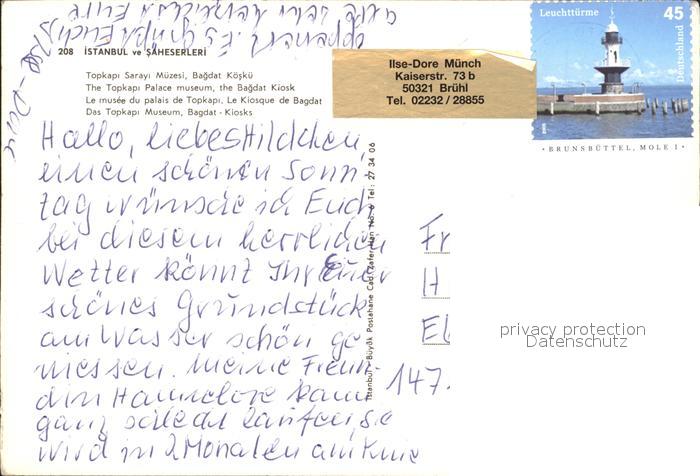 208 İSTANBUL ve ŞAHESERLERİ
Topkapı Sarayı Müzesi, Bağdat Köşkü
The Topkapı Palace museum, the Bağdat Kiosk
Le musée du palais de Topkapı, Le Kiosque de Bagdat
Das Topkapı Museum, Bagdat - Kiosks
Ilse-Dore Münch
Kaiserstr. 73 b
50321 Brühl
Tel. 02232 / 28855
Leuchttürme 45
Deutschland
• BRUNSBÜTTEL, MOLE I •
Hallo, liebes Hildchen,
einen schönen Sonn-
tag wünsche ich Euch
bei diesem herrlichen
Wetter könnt Ihr Euer
schönes Grundstück
am Wasser schön ge
niessen. Meine Freun-
din Hannelore kann
ganz schlecht laufen, sie
wird in 2 Monaten am Knie
operiert. Es grüßt Euch
alle sehr herzlich Eure
Ilse-Dore
Istanbul - Büyük Postahane Cad. Zafer Han No. 6 Tel: 27 34 06
Fr
H
El
147.
privacy protection
Datenschutz